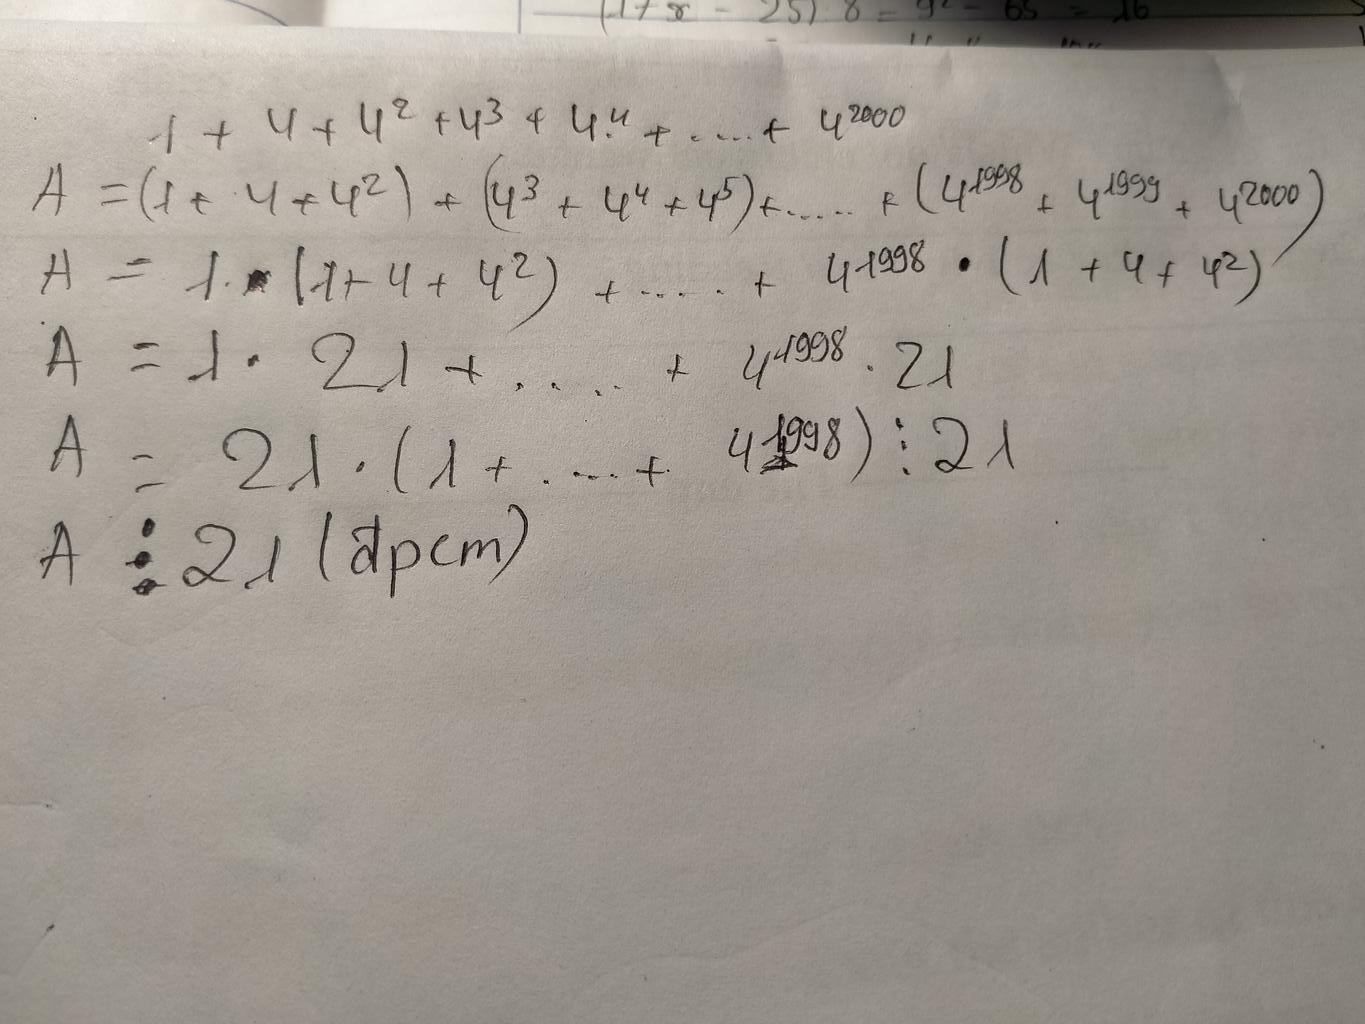 (1 + x - 25) · 8 = 9² - 65 = 16
1 + 4 + 4² + 4³ + 4⁴ + ..... + 4²⁰⁰⁰
A = (1 + 4 + 4²) + (4³ + 4⁴ + 4⁵) + ..... + (4¹⁹⁹⁸ + 4¹⁹⁹⁹ + 4²⁰⁰⁰)
A = 1 · (1 + 4 + 4²) + ..... + 4¹⁹⁹⁸ · (1 + 4 + 4²)
A = 1 · 21 + ..... + 4¹⁹⁹⁸ · 21
A = 21 · (1 + ..... + 4¹⁹⁹⁸) ⋮ 21
A ⋮ 21 (đpcm)